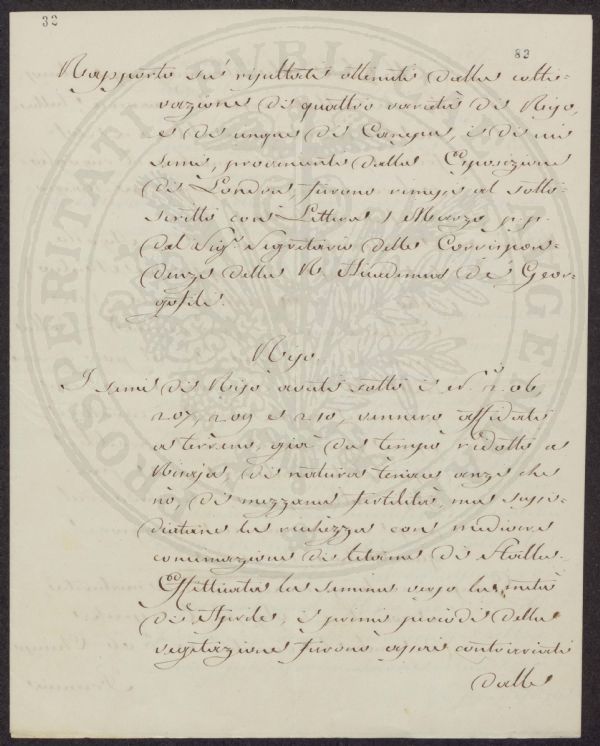 32
83
Rapporto su' risultati ottenuti dalla colti-
vazione di quattro varietà di Riso,
e di cinque di Canapa, i di cui
semi, provenienti dalla Esposizione
di Londra furono rimessi al sotto-
scritto con Lettera 1 Marzo p.p.
dal Sig.r Segretario delle Corrispon-
denze della R. Accademia dei Geor-
gofili.
Riso.
I semi di Riso avuti sotto i N.i 206,
207, 209 e 210, vennero affidati
a terreno già da tempo ridotto a
Risaja, di natura tenace anzi che
nò, di mezzana fertilità, ma sussi-
diatane la richezza con mediocre
concimazione di letame di Stalla.
Effettuata la semina verso la metà
di Aprile, i primi periodi della
vegetazione furono assai contrariati
dalle
PROSPERITATI PVBLICAE AVGENDAE